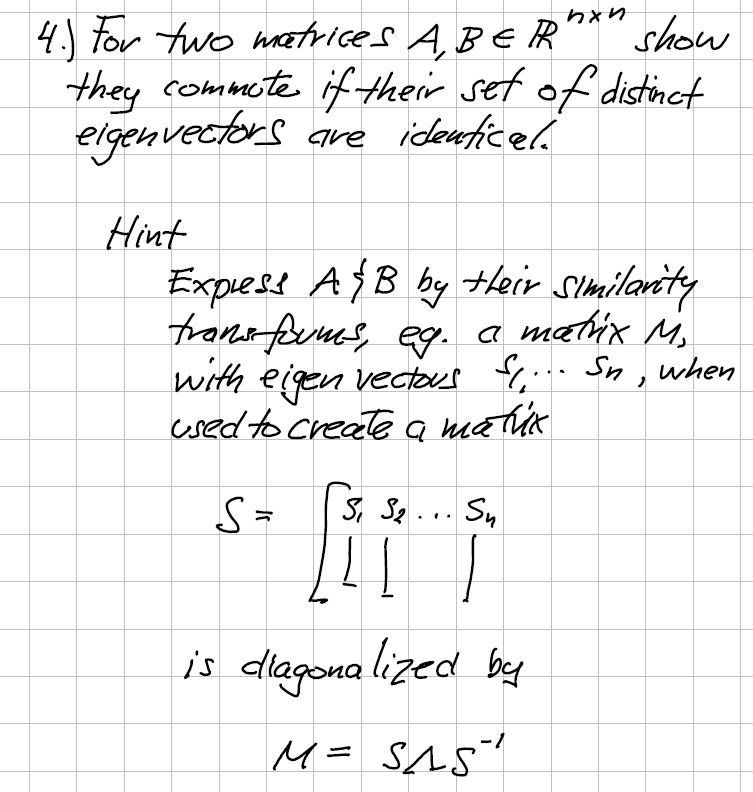 4.) For two matrices A, B ∈ ℝ^{n×n} show
they commute if their set of distinct
eigenvectors are identical.
Hint
Express A & B by their similarity
transforms, eg. a matrix M,
with eigen vectors S₁, ... Sₙ, when
used to create a matrix
S = [S₁ S₂ ... Sₙ
is diagonalized by
M = SΛS⁻¹